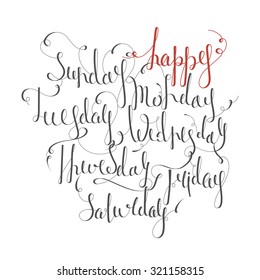 happy
Sunday
Monday
Tuesday
Wednesday
Thursday
Friday
Saturday
www.shutterstock.com · 321158315